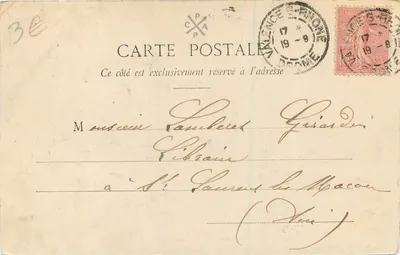 3€
C P P T
CARTE POSTALE
Ce côté est exclusivement réservé à l'adresse
VALENCE S-RHONE
17
19 - 8
DROME
VALENCE S-RHONE
17
19 - 8
Monsieur Lambert Girardin
Libraire
à St Laurent les Macon
(Ain)